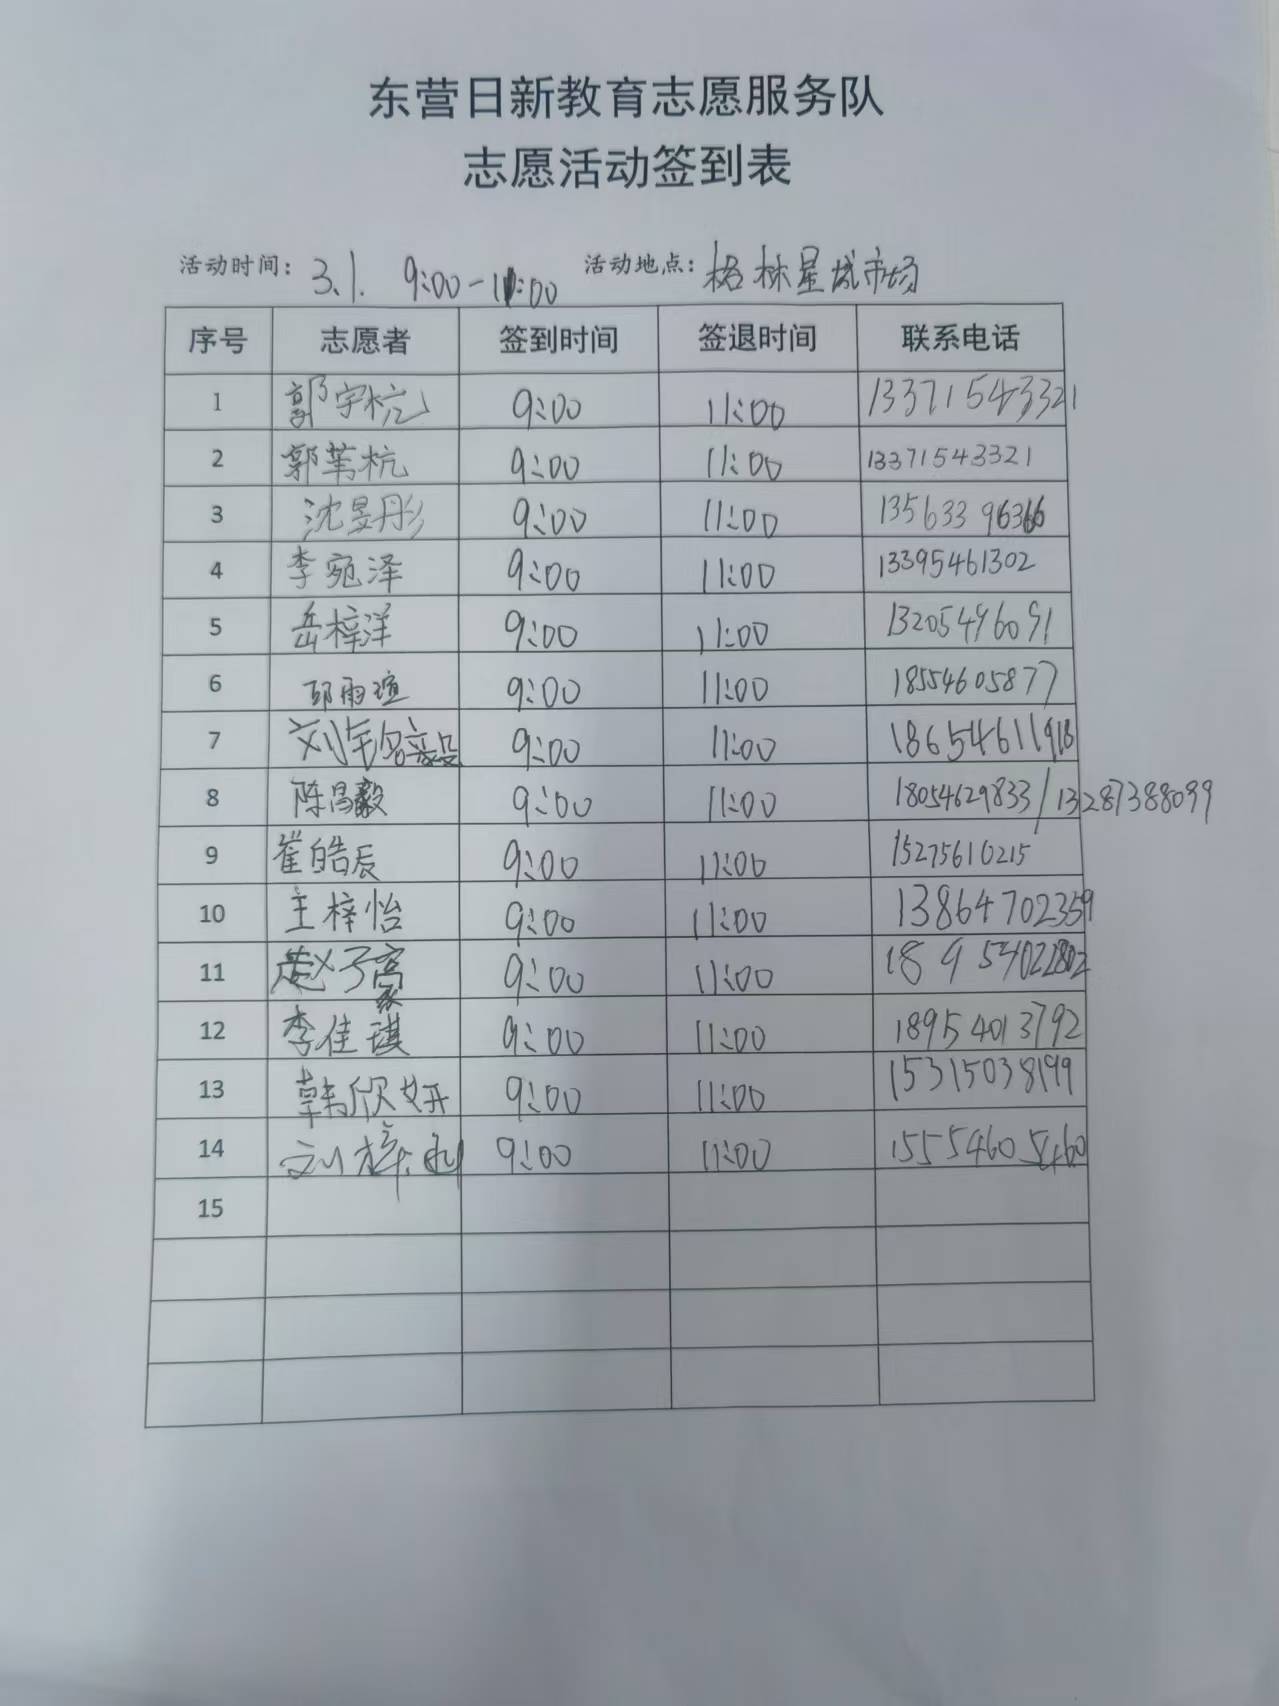 东营日新教育志愿服务队
志愿活动签到表
活动时间: 3.1. 9:00-11:00 活动地点: 格林星城市场
序号 志愿者 签到时间 签退时间 联系电话
1 郭宇杭 9:00 11:00 13371543321
2 郭苇杭 9:00 11:00 13371543321
3 沈昱彤 9:00 11:00 13563396366
4 李宛泽 9:00 11:00 13395461302
5 岳梓洋 9:00 11:00 13205496091
6 邱雨瑄 9:00 11:00 18554605877
7 9:00 11:00 18654611918
8 陈昌毅 9:00 11:00 18054629833/13287388099
9 崔皓辰 9:00 11:00 15275610215
10 王梓怡 9:00 11:00 13864702359
11 赵子豪 9:00 11:00
12 李佳琪 9:00 11:00 18954013792
13 韩欣妍 9:00 11:00 15315038199
14 刘梓 9:00 11:00 15554605460
15